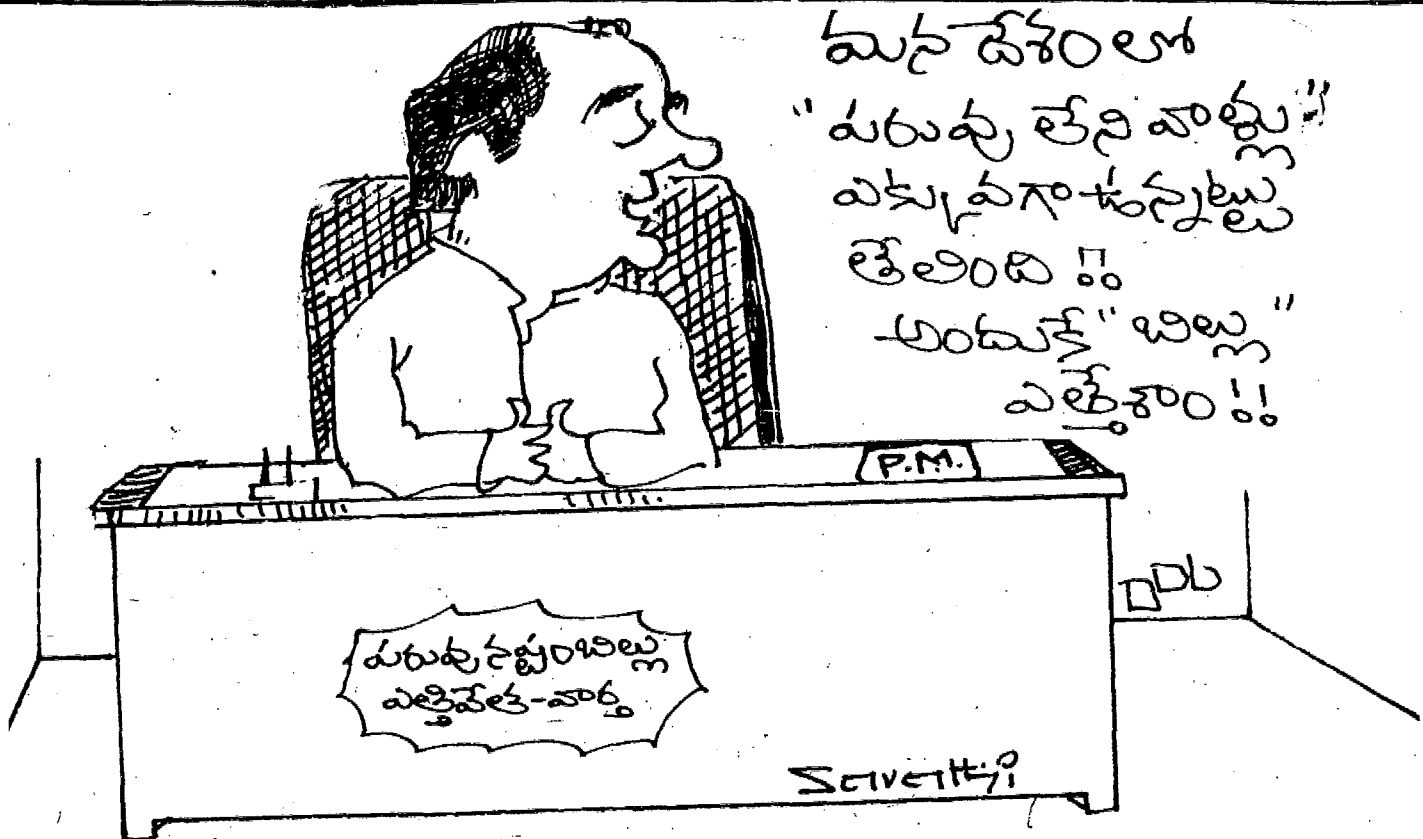 మన దేశంలో
"పరువు లేని వాళ్లు"
ఎక్కువగా ఉన్నట్లు
తేలింది !!
అందుకే "బిల్లు"
ఎత్తేశాం !!
P.M.
పరువునష్టంబిల్లు
ఎత్తివేత-వార్త